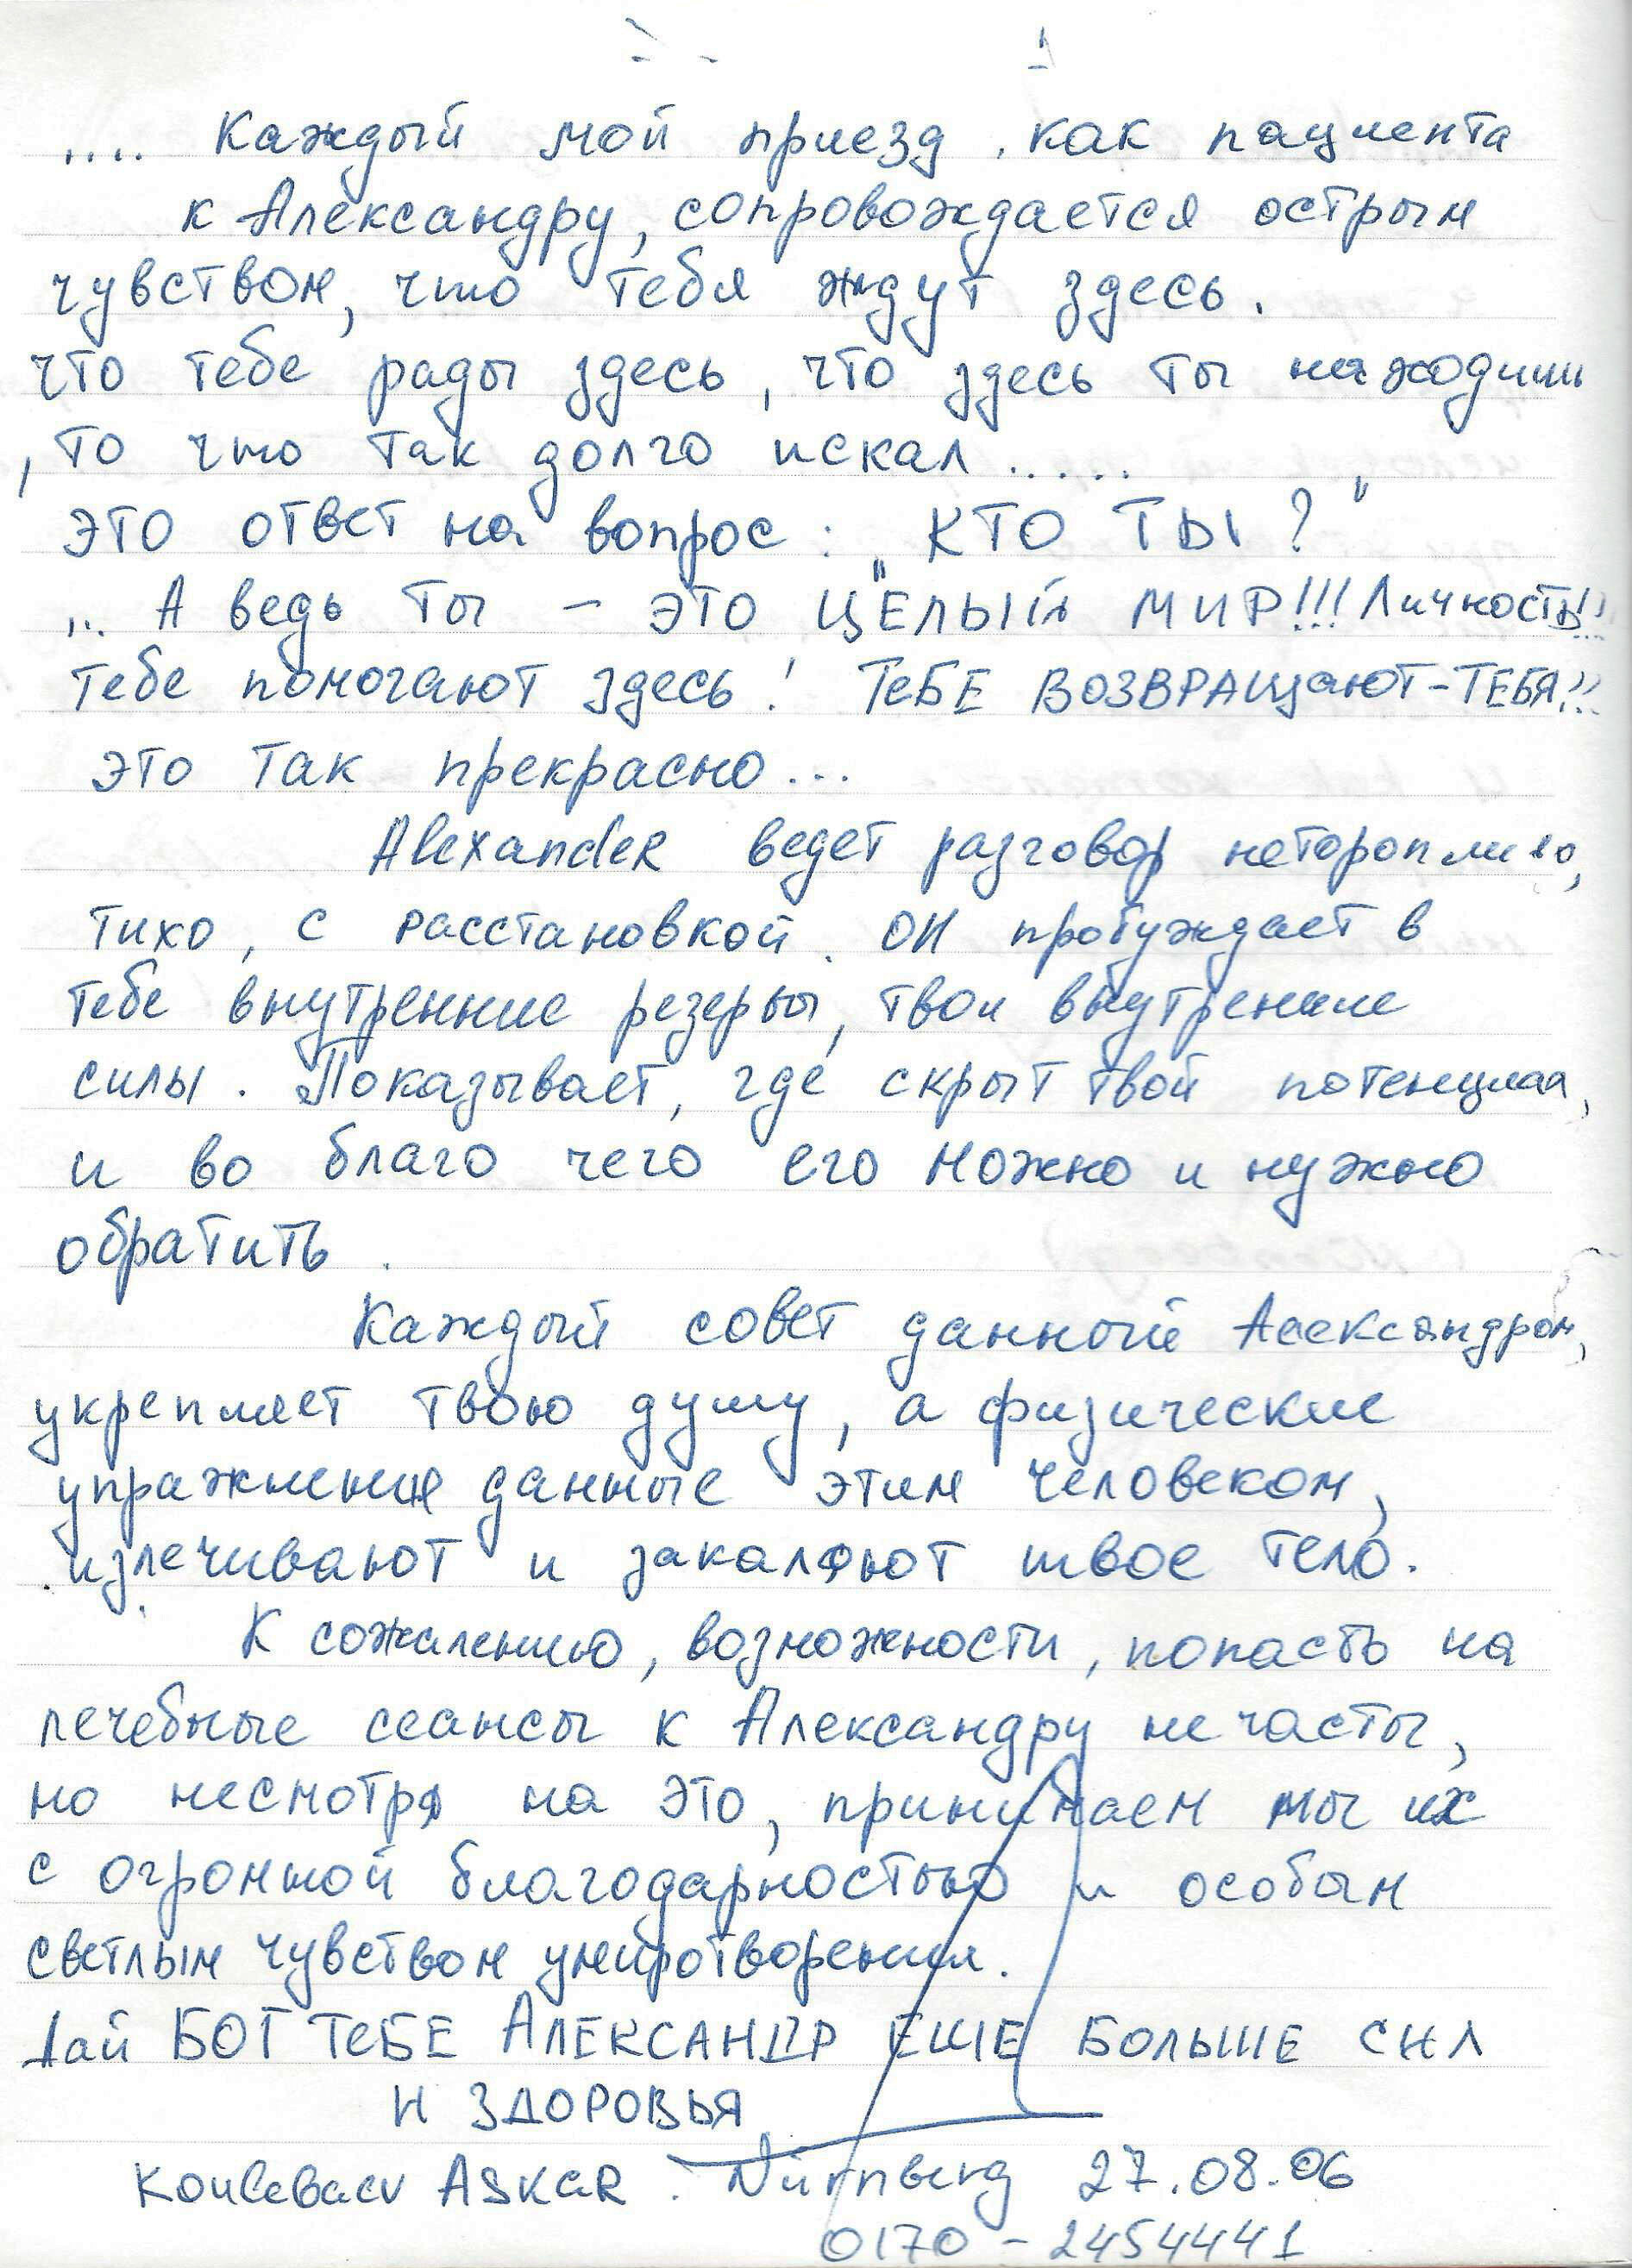 .... Каждый мой приезд, как пациента
к Александру, сопровождается острым
чувством, что тебя ждут здесь.
что тебе рады здесь, что здесь ты находишь
, то что так долго искал .....
это ответ на вопрос: "КТО ТЫ?"
... А ведь ты – это ЦЕЛЫЙ МИР!!! Личность!!
тебе помогают здесь! ТЕБЕ ВОЗВРАЩают-ТЕБЯ!!!
это так прекрасно...
Alexander ведет разговор неторопливо,
тихо, с расстановкой. ОН пробуждает в
тебе внутренние резервы, твои внутренние
силы. Показывает, где скрыт твой потенциал,
и во благо чего его можно и нужно
обратить.
Каждый совет данный Александром,
укрепляет твою душу, а физические
упражнения данные этим человеком,
излечивают и закаляют твое тело.
К сожалению, возможности, попасть на
лечебные сеансы к Александру не часты,
но несмотря на это, принимаем мы их
с огромной благодарностью и особым
светлым чувством умиротворения.
Дай БОГ ТЕБЕ АЛЕКСАНДР ЕШЕ БОЛЬШЕ СИЛ
И ЗДОРОВЬЯ
ASKAR. Nürnberg 27.08.06
0170 - 2454441